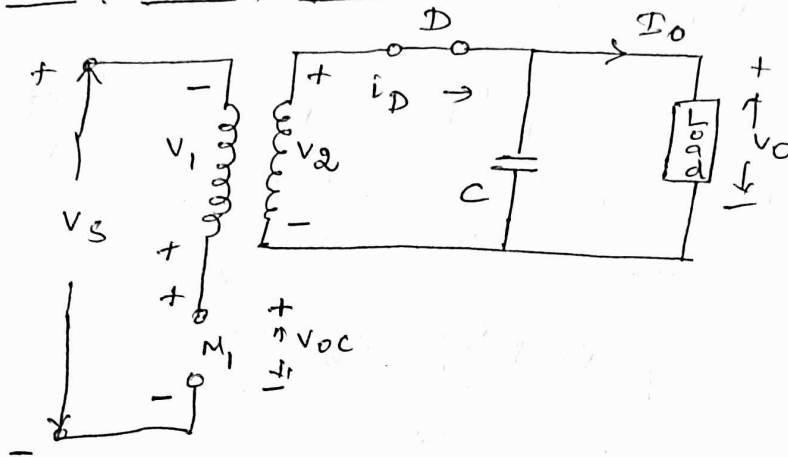 D
I0
+
-
+
iD →
+
V1
V2
C
Load
V0
-
VS
+
-
+
M1
+
VOC
-
-
-